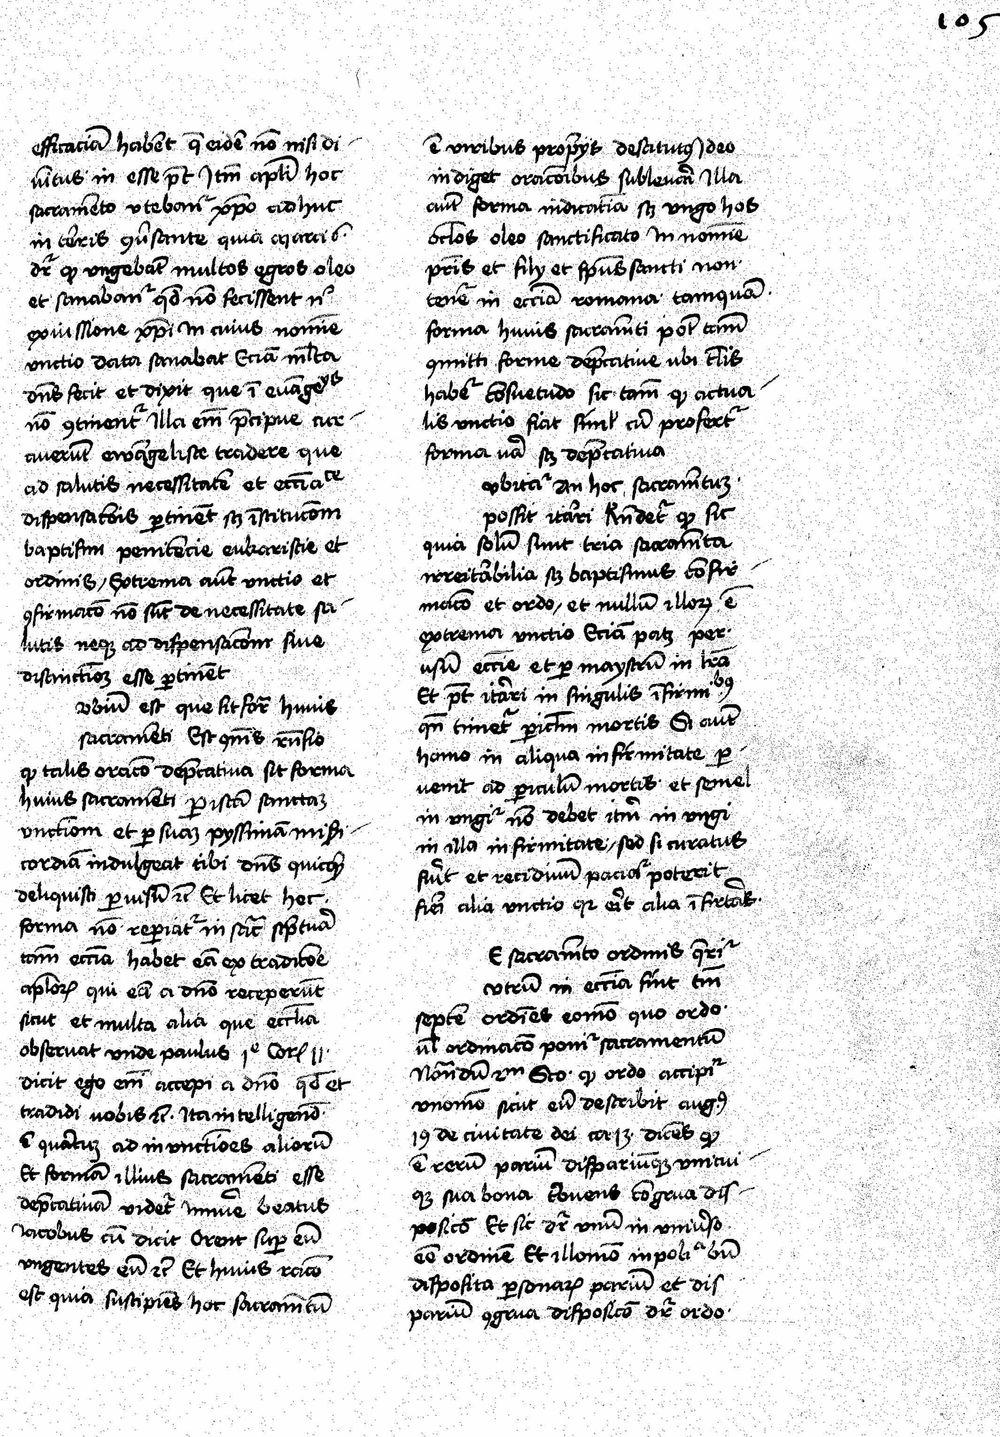 105
efficaciā habēt q̄ eidē nō nisi di-
uītus in esse pt̄ Itm̄ apl̄i hoc
sacramēto vtebanr̄ xp̄o adhuc
in terris 9ūsante quia marci 6
dr̄ ꝙ vngebāt multos egros oleo
et sanabanr̄ qd̄ nō fecissent nͥ
ex iussione xp̄i In cuius nomīe
vnctio data sanabat Eciā ml̄ta
dn̄s fecit et dixit que ī euāgeijs
nō 9tinentr̄ Illa em̄ pr̄cipue cur-
auerūt ewāgeliste tradere que
ad salutis necessitatē et eccīace
dispensacōis ꝑtinēt sꝫ īstitucōm
baptismi penitēcie eukaristie et
ordinis / Extrema aūt vnctio et
9firmacō nō sūt de necessitate sa-
lutis neqꝫ ad dispensacōem siue
distinctiōꝫ esse ꝑtinēt
vbiū est que sit for̄ huius
sacramēti Est 9nis rn̄sio
ꝙ talis oracō dep̄catiua sit forma
huius sacramēti ꝑ istā sanctaꝫ
vnctiōm et ꝑ suaꝫ pyssimā mis̄i-
cordiā indulgeat tibi dn̄s quicq̄
deliquisti ꝑ uisū ꝛc̄ Et licet hec
forma nō reperiatr̄ in sacr̄ sc̄ptura
tam̄ eccīa habet eā ex tradicōe
aplōrꝫ qui eā a dn̄o receperūt
sicut et multa alia que eccl̄ia
obseruat vnde paulus 1ͤ Corꝫ 11
dicit ego em̄ accepi a dn̄o qd̄ et
tradidi uobis ꝛc̄. Ita intelligend̄
ē quātuꝫ ad in vnctiōes aliorū
Et formā illius sacramēti esse
dep̄catiuā videtr̄ Innūe beatus
Iacobus cū dicit Orent sup̄ eū
vngentes eū ꝛc̄ Et huius racō
est quia suscipiēs hoc sacramn̄tū
ē viribus prop̄ijs destitutꝰ Ideo
indiget oracōibus subleuari Illa
aūt forma indicatīa sꝫ vngo hos
ocl̄os oleo sanctificato In nomīe
pr̄is et filij et sp̄us sancti non
tenē in eccīa romana tamquā
forma huius sacramn̄ti post tam̄
9mitti forme dep̄catiue vbi tl̄is
haber̄ cōsuetudo sic tam̄ ꝙ actua-
lis vnctio fiat simul cū profertr̄
forma uā sꝫ dep̄catiua
vbitar̄ An hoc sacramn̄tuꝫ
possit itāri Rn̄detr̄ ꝙ sic
quia solū sunt tria sacramn̄ta
irreitābilia sꝫ baptismus cōfir-
macō et ordo / et nullū illorꝫ ē
extrema vnctio Eciā patꝫ per
usū eccīe et ꝑ maystrū in lr̄a
Et pt̄ itāri in singulis īfirmibꝰ
qn̄ timetr̄ ꝑiclm̄ mortis Si aūt
homo in aliqua infirmitate ꝑ-
uenit ad ꝑiculū mortis et semel
in vngir̄ nō debet itm̄ in vngi
in illa infirmitate / sed si curatus
fūit et recidiuū paciar̄ poterit
fieri alia vnctio qꝛ erit alia īfirtās
E sacramn̄to ordinis q̄rir̄
vtrū in eccīa sint tm̄
septē ordīes eomō quo ordo
ul̄ ordinacō ponir̄ sacramentū
Nōndū 2m̄ Sco. ꝙ ordo accipir̄
vnomō sicut eū describit augꝰ
19 de ciuitate dei ca 13 dicēs ꝙ
ē rerū pariū dispariūqꝫ unicui-
qꝫ sua bona tbuens cōgrua dis-
posicō Et sic dr̄ vnū in vniūso
eē ordinē Et illomō in poli a bū
disposita ꝑsonarꝫ pariū et dis
pariū 9grua disposicō dr̄ ordo